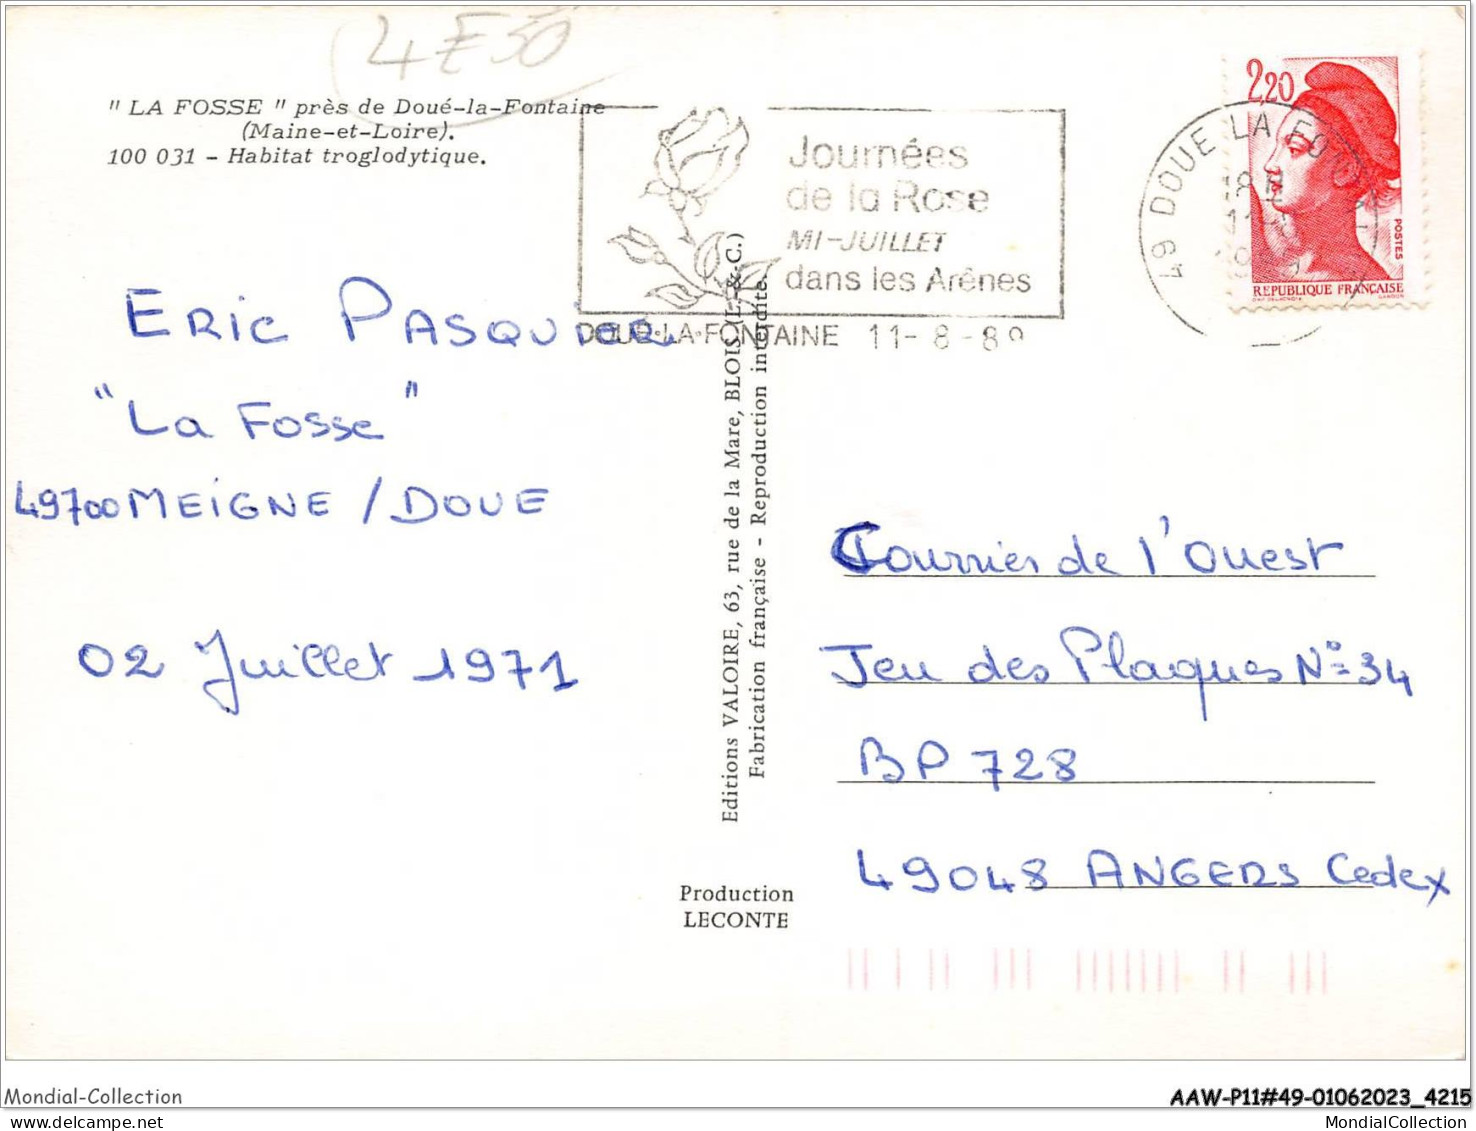 4E50
" LA FOSSE " près de Doué-la-Fontaine
(Maine-et-Loire).
100 031 - Habitat troglodytique.
Journées
de la Rose
MI-JUILLET
dans les Arênes
DOUE·LA·FONTAINE 11-8-89
49 DOUE LA FONTAINE
2,20
POSTES
REPUBLIQUE FRANÇAISE
ERIC PASQUIER
"La Fosse"
49700 MEIGNE / DOUE
02 Juillet 1971
Editions VALOIRE, 63, rue de la Mare, BLOIS (L.-&-C.)
Fabrication française - Reproduction interdite.
Production
LECONTE
Courrier de l'Ouest
Jeu des Plaques N° 34
BP 728
49048 ANGERS Cedex
Mondial-Collection
AAW-P11#49-01062023_4215
MondialCollection